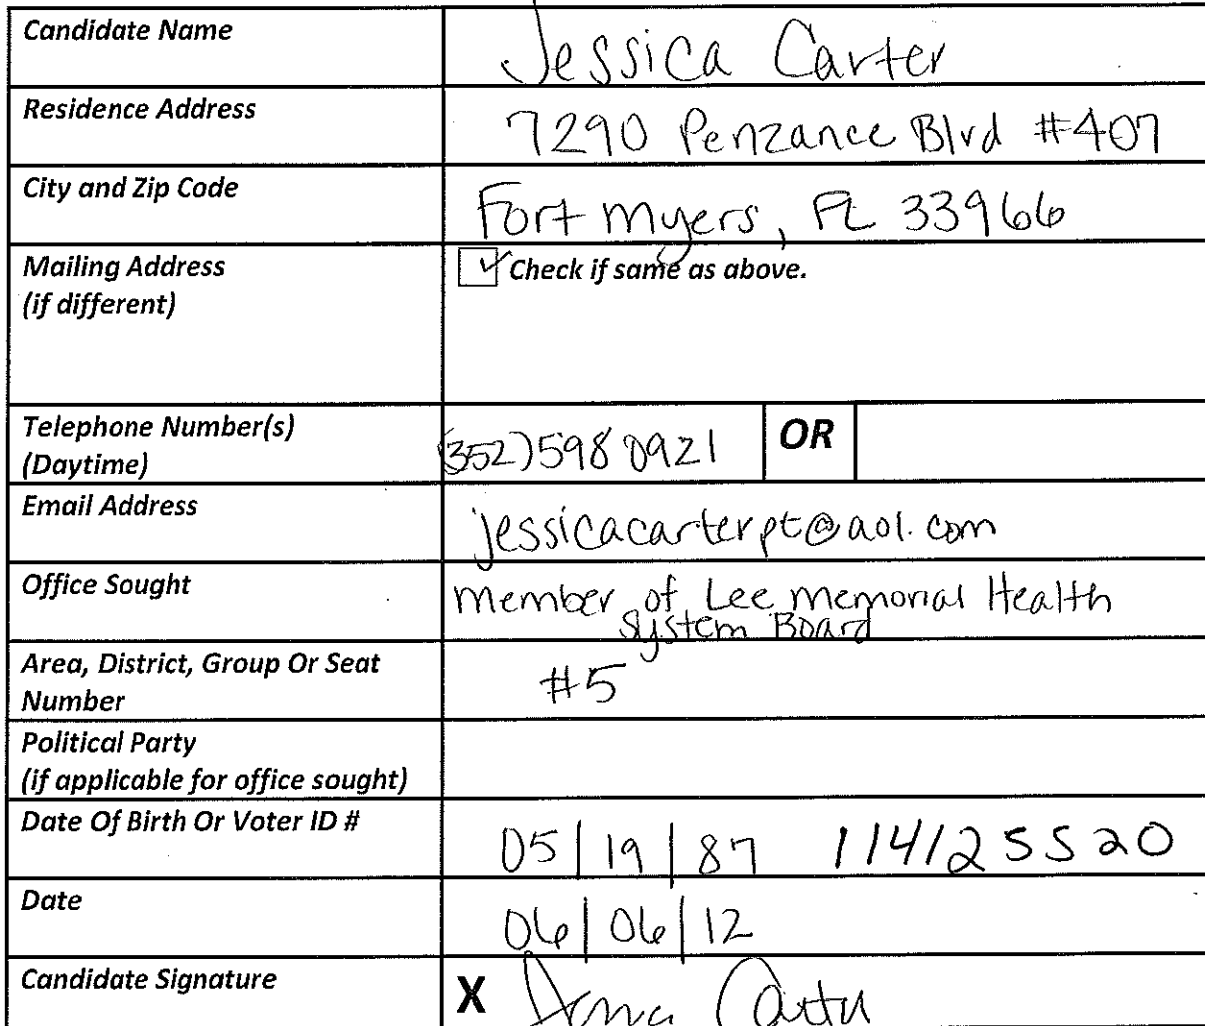 Candidate Name Jessica Carter
Residence Address 7290 Penzance Blvd #407
City and Zip Code Fort Myers, FL 33966
Mailing Address
(if different)
Check if same as above.
Telephone Number(s)
(Daytime)
(352)598 0921 OR
Email Address jessicacarterpt@aol.com
Office Sought member of Lee memorial Health
System Board
Area, District, Group Or Seat
Number
#5
Political Party
(if applicable for office sought)
Date Of Birth Or Voter ID # 05/19/87 114125520
Date 06/06/12
Candidate Signature X